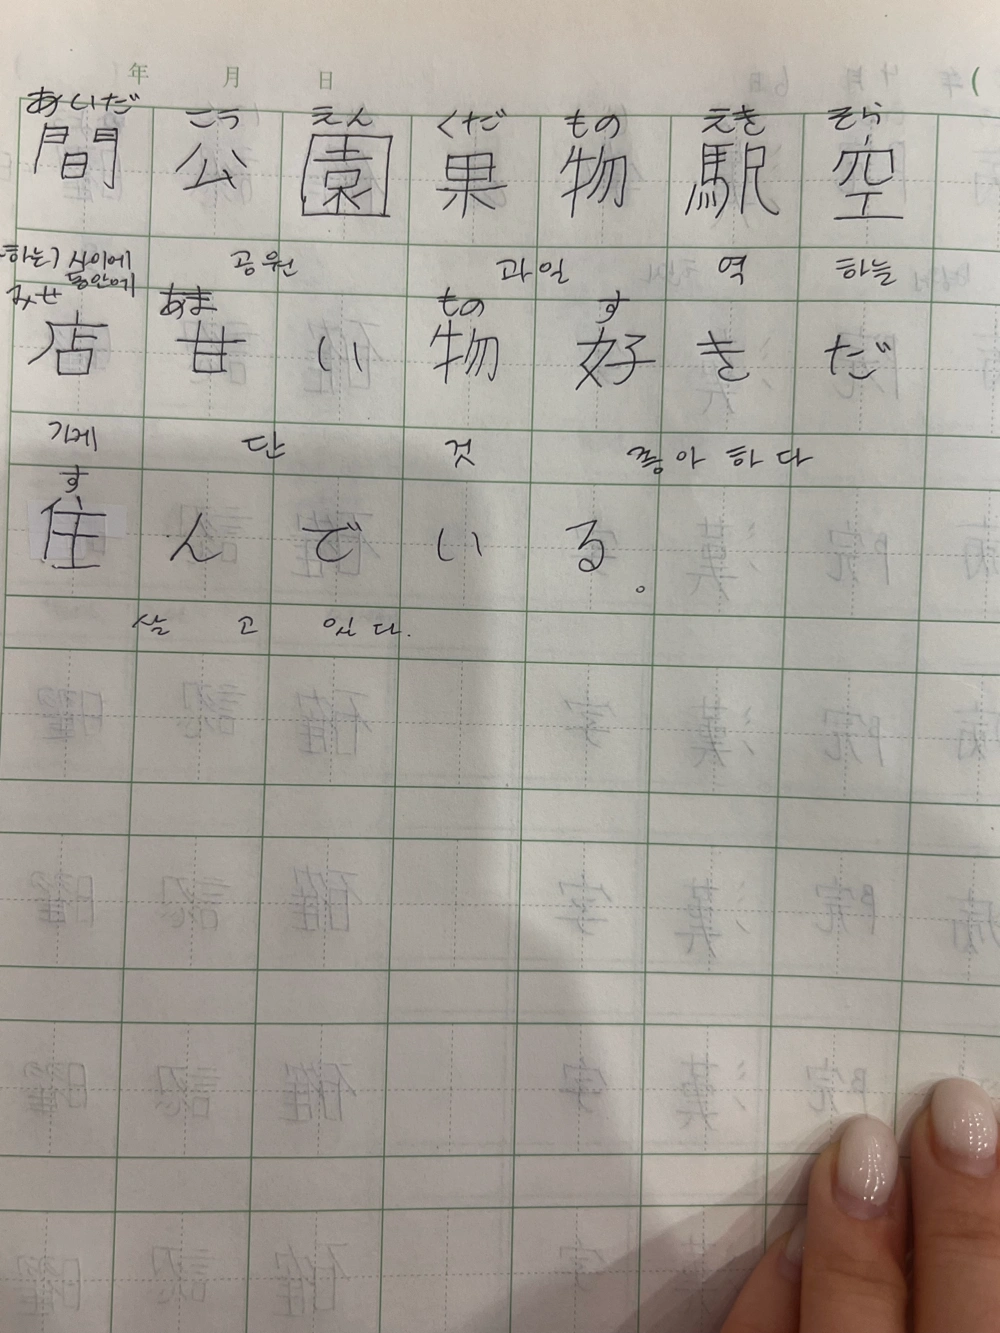 年 月 日 (
あいだ こう えん くだ もの えき そら
間 公 園 果 物 駅 空
하는) 사이에 공원 과일 역 하늘
동안에
みせ あま もの す
店 甘 い 物 好 き だ
가게 단 것 좋아하다
す
住 ん で い る 。
살 고 있다.